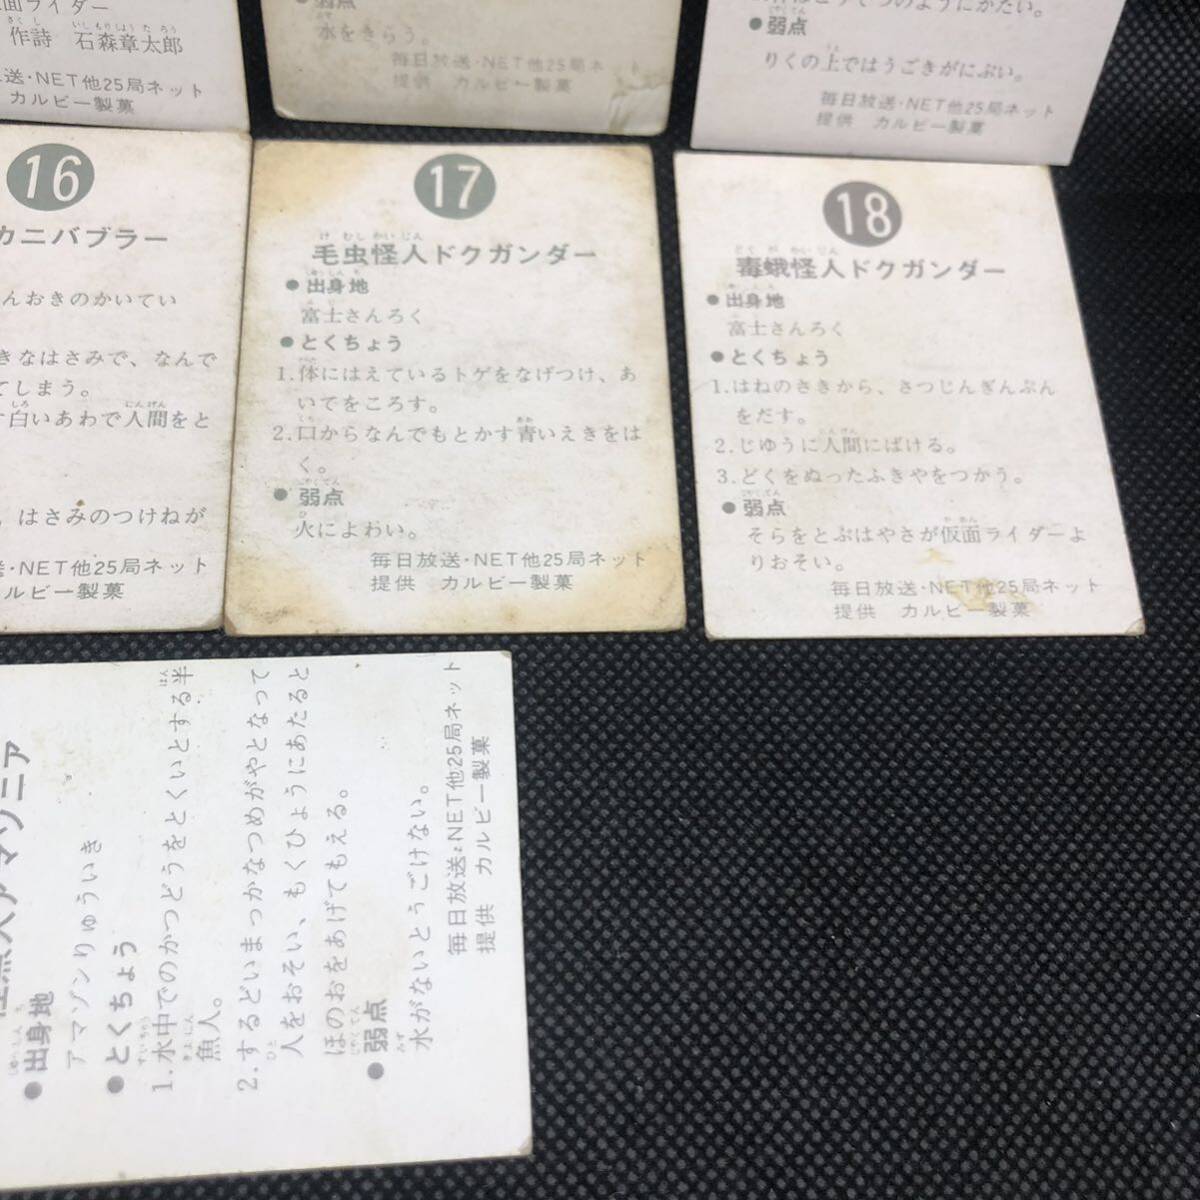 面ライダー
作詩 石森章太郎
送・NET他25局ネット
カルビー製菓
弱点
水をきらう。
毎日放送・NET他25局ネット
提供 カルビー製菓
のようにかたい。
●弱点
りくの上ではうごきがにぶい。
毎日放送・NET他25局ネット
提供 カルビー製菓
16
カニバブラー
んおきのかいてい
きなはさみで、なんで
てしまう。
白いあわで人間をと
、はさみのつけねが
・NET他25局ネット
ルビー製菓
17
毛虫怪人ドクガンダー
●出身地
富士さんろく
●とくちょう
1.体にはえているトゲをなげつけ、あ
いてをころす。
2.口からなんでもとかす青いえきをは
く。
●弱点
火によわい。
毎日放送・NET他25局ネット
提供 カルビー製菓
18
毒蛾怪人ドクガンダー
●出身地
富士さんろく
●とくちょう
1.はねのさきから、さつじんぎんぷん
をだす。
2.じゆうに人間にばける。
3.どくをぬったふきやをつかう。
●弱点
そらをとぶはやさが仮面ライダーよ
りおそい。
毎日放送・NET他25局ネット
提供 カルビー製菓
アマゾニア
●出身地
アマゾンりゅういき
●とくちょう
1.水中でのかつどうをとくいとする半
魚人。
2.するどいまっかなつめがやとなって
人をおそい、もくひょうにあたると
ほのおをあげてもえる。
●弱点
水がないとうごけない。
毎日放送・NET他25局ネット
提供 カルビー製菓